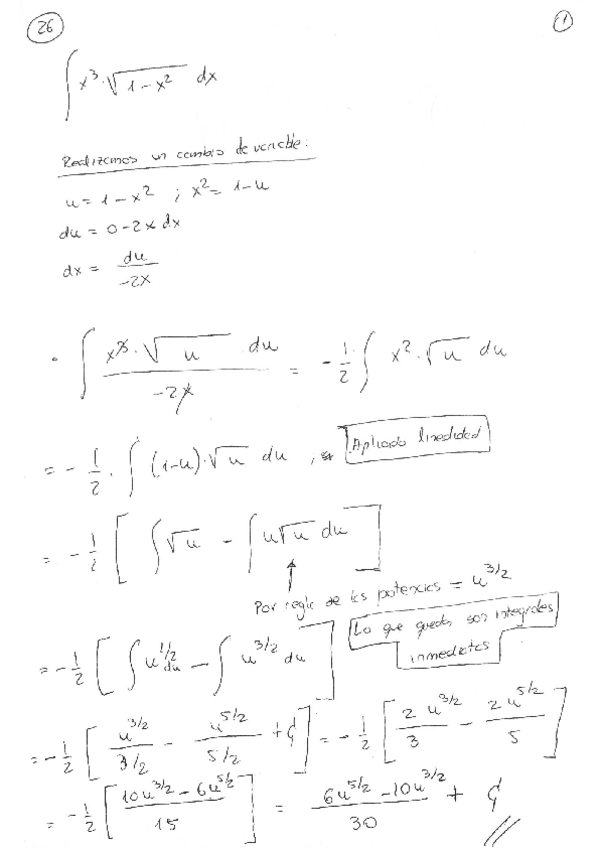 26 1
∫ x³·√(1-x²) dx
Realizamos un cambio de variable:
u = 1-x² ; x² = 1-u
du = 0-2x dx
dx = du/-2x
· ∫ x³·√u du / -2x = -1/2 ∫ x²·√u du
= -1/2 · ∫ (1-u)·√u du , Aplicado linealidad
= -1/2 [ ∫√u - ∫u√u du ]
Por regla de las potencias = u^3/2
Lo que queda son integrales inmediatas
= -1/2 [ ∫u^1/2 du - ∫u^3/2 du ]
= -1/2 [ u^3/2 / 3/2 - u^5/2 / 5/2 + C ] = -1/2 [ 2u^3/2 / 3 - 2u^5/2 / 5 ]
= -1/2 [ (10u^3/2 - 6u^5/2) / 15 ] = (6u^5/2 - 10u^3/2) / 30 + C //